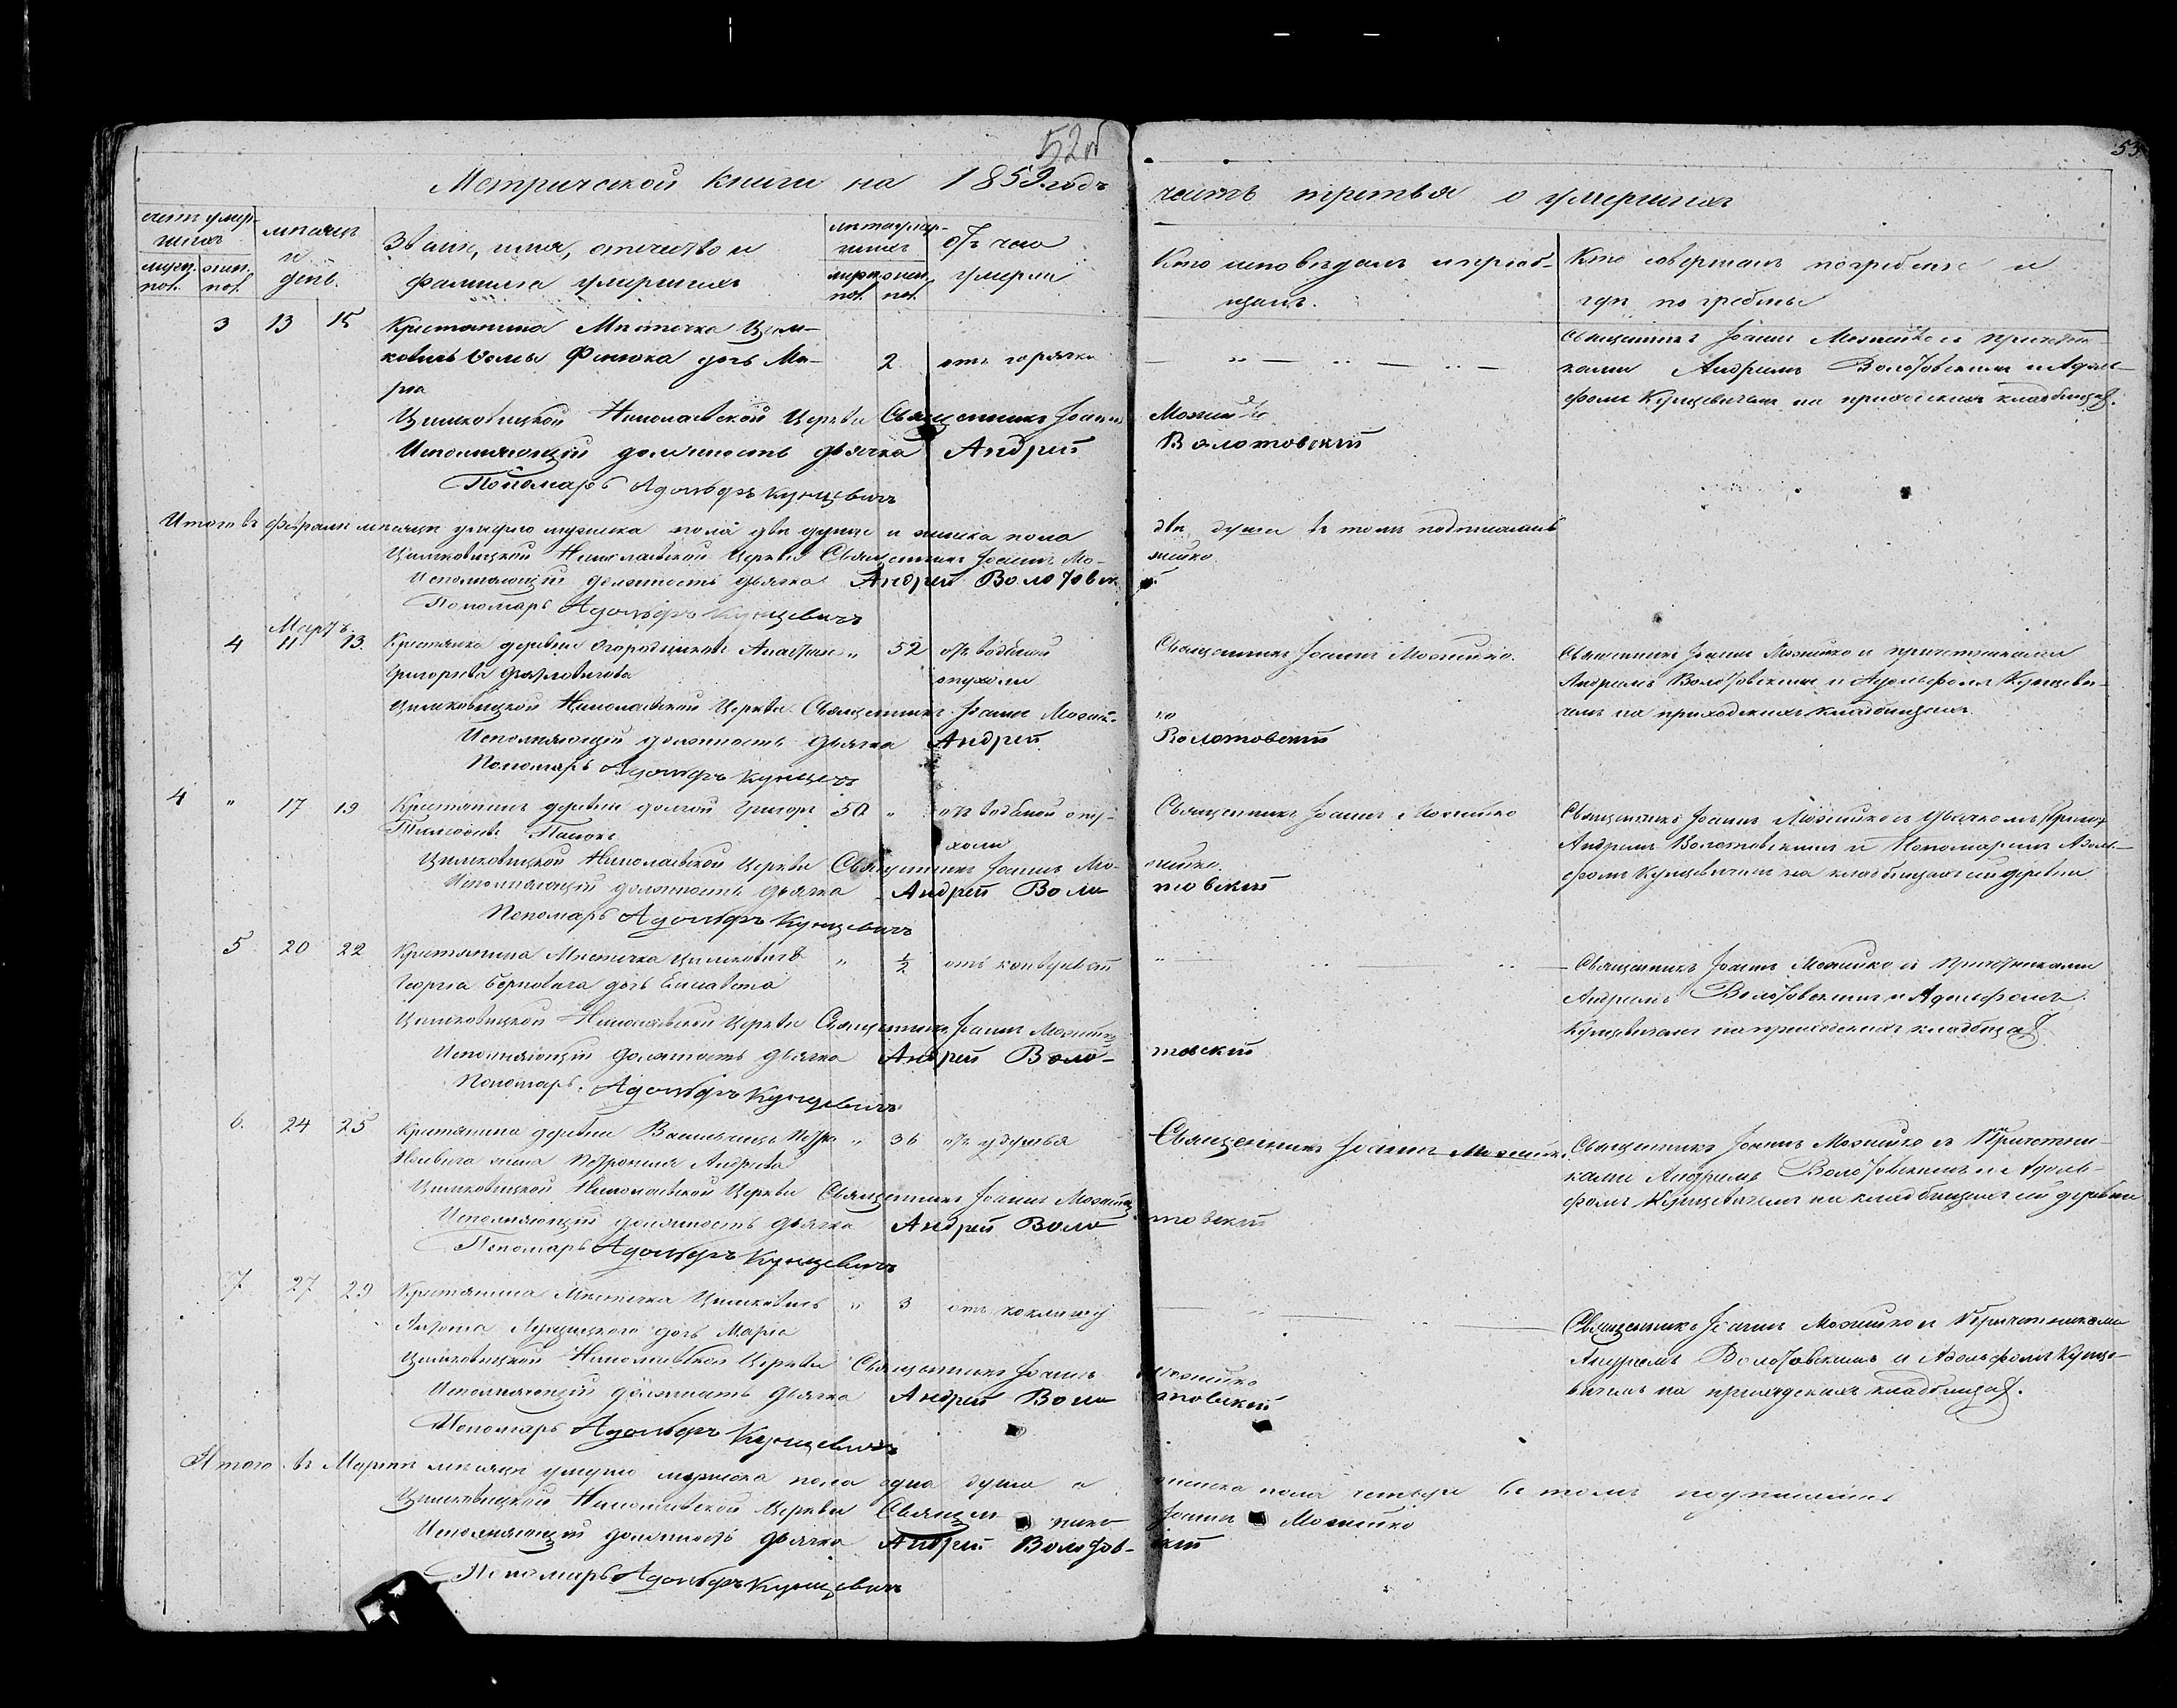 52об
53
Метрической книги на 1859 годъ часть третья о умершихъ
счетъ умер-
шихъ
муж. жен.
пол. пол.
мѣсяцъ
и
день.
Званіе, имя, отечество и
фамилія умершихъ
лѣта умер-
шихъ
муж. жен.
пол. пол.
отъ чего
умерли
Кто исповѣдалъ и пріоб-
щалъ.
Кто совершалъ погребеніе и
гдѣ погребены
3 13 15 Крестьянина Мѣстечка Цим-
ковичь Фомы дочь Ма- 2 отъ горячки
рія
Священникъ Іоаннъ Можейко съ причетни-
ками Андреемъ Волотовскимъ и Адоль-
фомъ Кунцевичемъ на приходскихъ кладбищахъ.
Цимковицкой Николаевской Церкви Священникъ Іоаннъ Можейко
Исполняющій должность дьячка Андрей Волотовскій
Пономарь Адольфъ Кунцевичъ
Итого въ Февралѣ мѣсяцѣ умерло мужеска пола двѣ души и женска пола двѣ души въ томъ подписались
Цимковицкой Николаевской Церкви Священникъ Іоаннъ Мо- жейко
Исполняющій должность дьячка Андрей Волотовск ій
Пономарь Адольфъ Кунцевичъ
Мартъ
4 11 13. Крестьянка деревни Огородниковъ Анастасія „ 52 отъ водяной
Григорьева опухоли
Священникъ Іоаннъ Можейко.
Священникъ Іоаннъ Можейко и причетниками
Андреемъ Волотовскимъ и Адольфомъ Кунцеви-
чемъ на приходскихъ кладбищахъ
Цимковицкой Николаевской Церкви Священникъ Іоаннъ Можей- ко
Исполняющій должность дьячка Андрей Волотовскій
Пономарь Адольфъ Кунцевичъ
4 „ 17 19 Крестьянинъ деревни Долгой Григорій 50 „ отъ водяной опу-
Тимофеевъ холи
Священникъ Іоаннъ Можейко
Священникъ Іоаннъ Можейко съ дьячкомъ
Андреемъ Волотовскимъ и Пономаремъ Адоль-
фомъ Кунцевичемъ на кладбищахъ сей деревни
Цимковицкой Николаевской Церкви Священникъ Іоаннъ Мо- жейко.
Исполняющій должность дьячка Андрей Воло товскій
Пономарь Адольфъ Кунцевичъ
5 20 22 Крестьянина Мѣстечка Цимковичь „ ½ отъ конвульсій „
Георгія дочь Елисавета
Священникъ Іоаннъ Можейко съ Причетниками
Андреемъ Волотовскимъ и Адольфомъ
Кунцевичемъ на приходскихъ кладбищахъ
Цимковицкой Николаевской Церкви Священникъ Іоаннъ Можейко
Исполняющій должность дьячка Андрей Воло- товскій
Пономарь. Адольфъ Кунцевичъ
6. 24 25 Крестьянина деревни Васильчицъ Петра „ 36 отъ удушья
жена Петронеля Андреева
Священникъ Іоаннъ Можейко
Священникъ Іоаннъ Можейко съ Причетни-
ками Андреемъ Волотовскимъ и Адоль-
фомъ Кунцевичемъ на кладбищахъ сей деревни
Цимковицкой Николаевской Церкви Священникъ Іоаннъ Можейко
Исполняющій должность дьячка Андрей Воло товскій
Пономарь Адольфъ Кунцевичъ
7 27 29 Крестьянина Мѣстечка Цимковичь „ 3 отъ коклюшу
Антона дочь Марія
Священникъ Іоаннъ Можейко съ Причетниками
Андреемъ Волотовскимъ и Адольфомъ Кунце-
вичемъ на приходскихъ кладбищахъ.
Цимковицкой Николаевской Церкви Священникъ Іоаннъ Можейко
Исполняющій должность дьячка Андрей Воло товскій
Пономарь Адольфъ Кунцевичъ
Итого въ Мартѣ мѣсяцѣ умерло мужеска пола одна душа а женска пола четыре въ томъ подписались
Цимковицкой Николаевской Церкви Священ никъ Іоаннъ Можейко
Исполняющій должность дьячка Андрей Волотов- скій
Пономарь Адольфъ Кунцевичъ